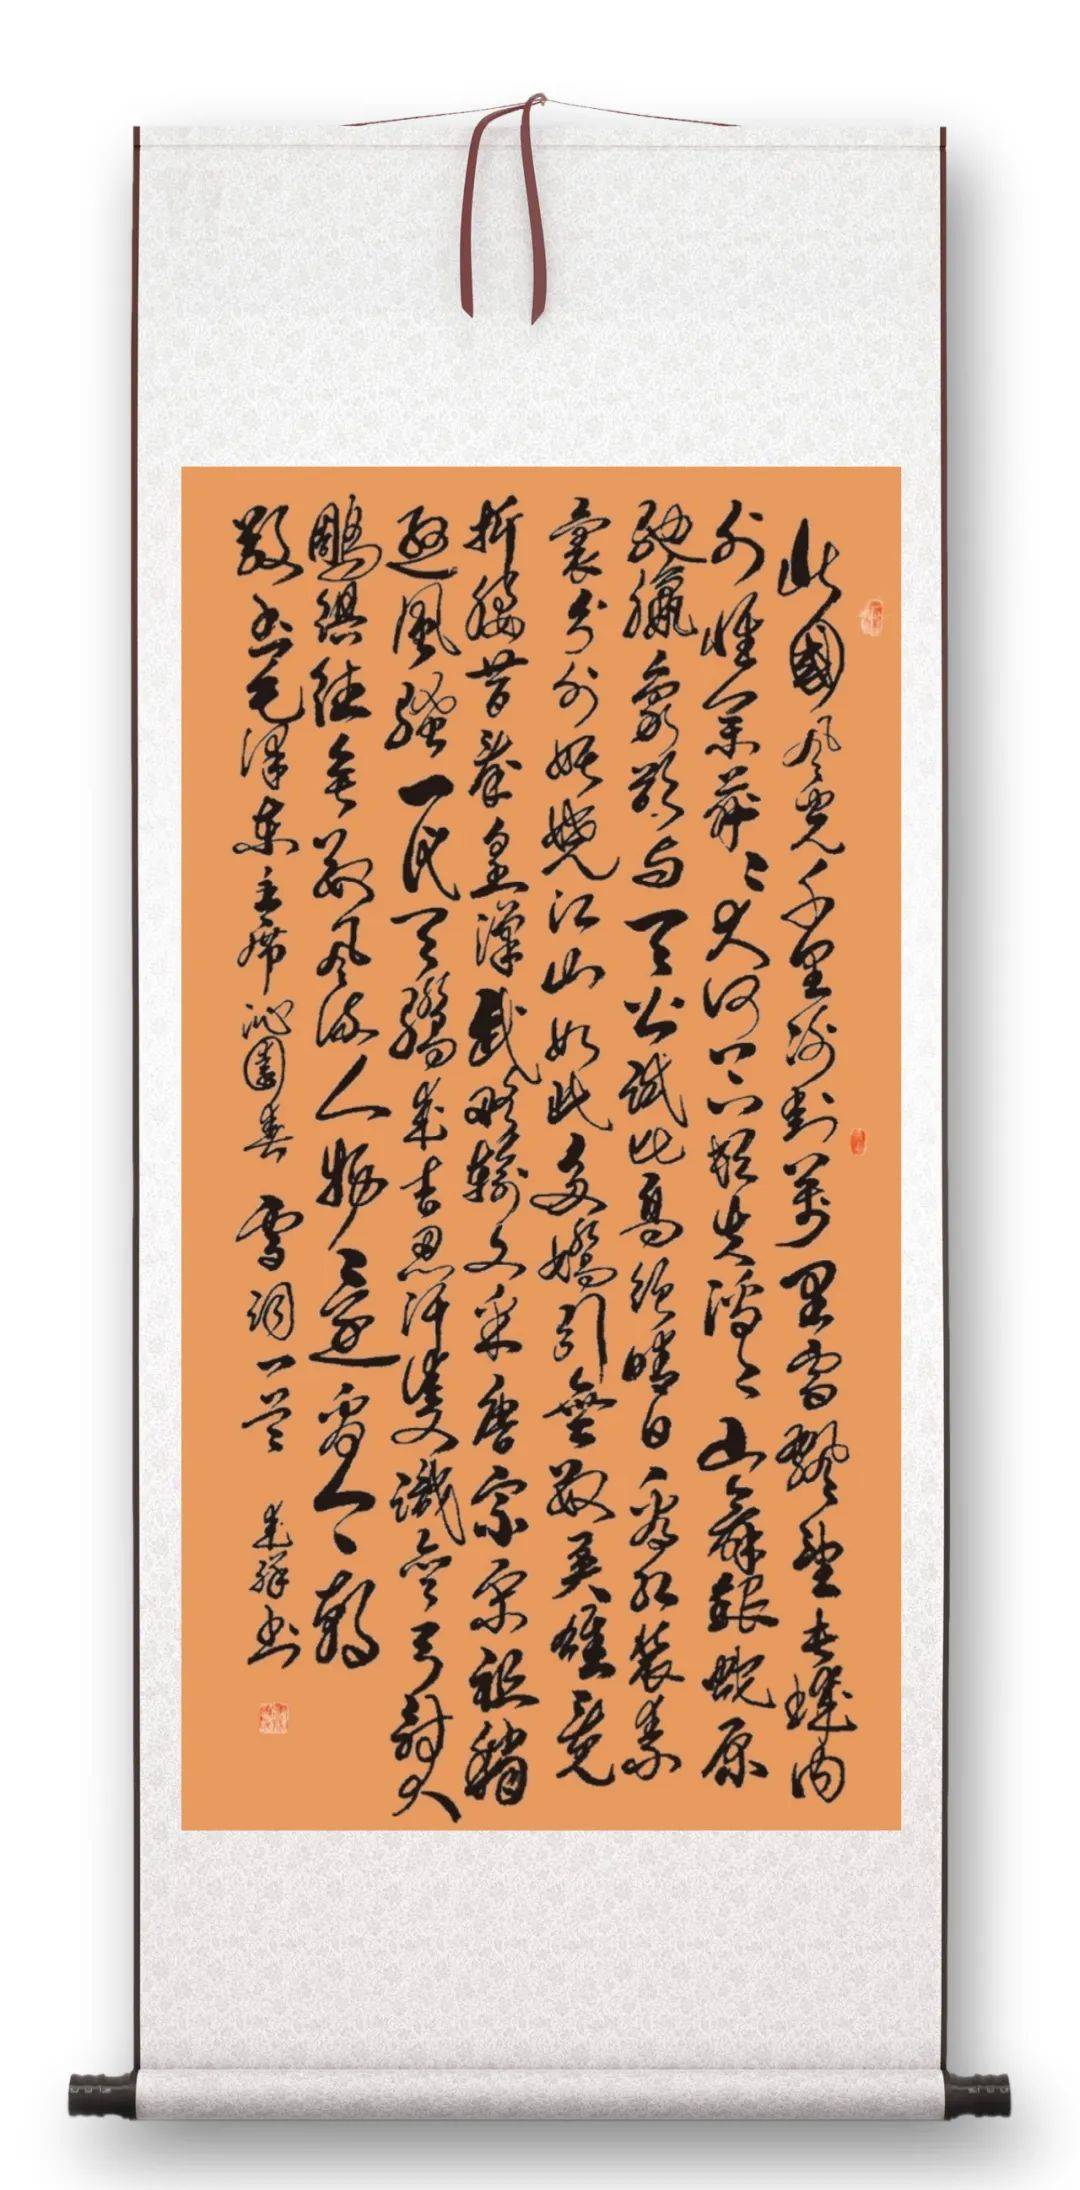 北國風光千里冰封萬里雪飄望長城內
外惟余莽〻大河上下頓失滔〻山舞銀蛇原
馳蠟象欲與天公試比高須晴日看紅裝素
裹分外妖嬈江山如此多嬌引無數英雄競
折腰昔秦皇漢武略輸文采唐宗宋祖稍
遜風騷一代天驕成吉思汗隻識彎弓射大
鵰俱往矣數風流人物〻還看今〻朝
敬书毛澤東主席沁園春 雪词一首 成祥书